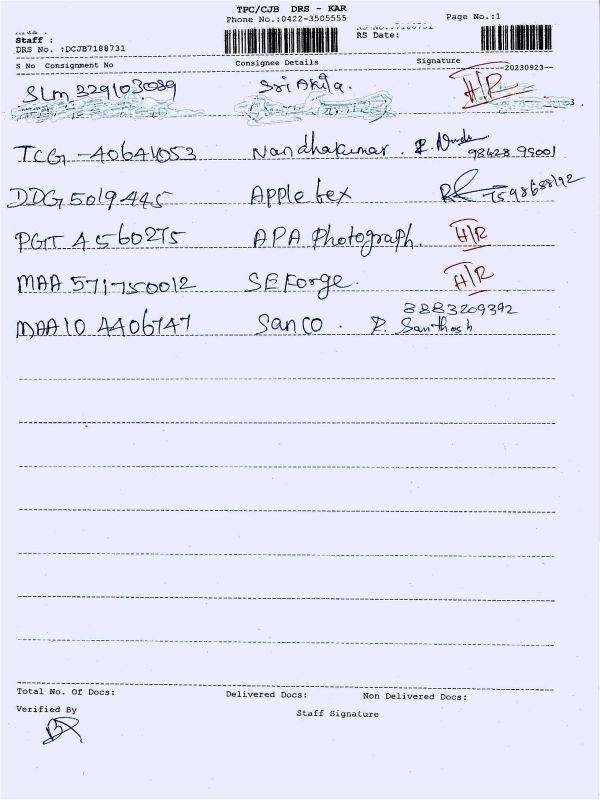 TPC/CJB DRS - KAR
Phone No.:0422-3505555 Page No.:1
Staff :
RS Date:
DRS No. :DCJB7188731
S No Consignment No Consignee Details Signature
20230923
SLM 329103089 Sri Akila. H/R
TCG - 40641053 Nandhakumar. 98428 99001
DDG 5019445 Apple tex 7598688192
PGT 4560275 APA Photograph. H/R
MAA 571750012 SE Forge. H/R
8883209392
MAA10 4406747 Sanco. R. Santhosh
Total No. Of Docs: Delivered Docs: Non Delivered Docs:
Verified By Staff Signature